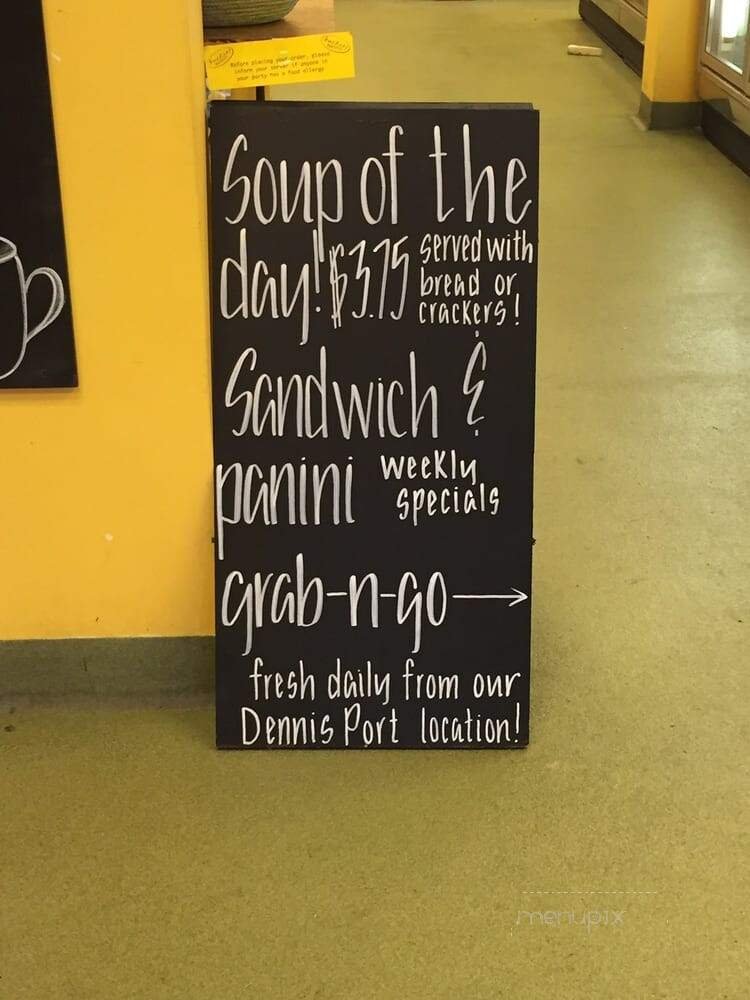 Before placing your order, please
inform your server if anyone in
your party has a food allergy
Soup of the
day! $3.75 served with
bread or
crackers!
Sandwich &
panini weekly
specials
grab-n-go →
fresh daily from our
Dennis Port location!
menupix